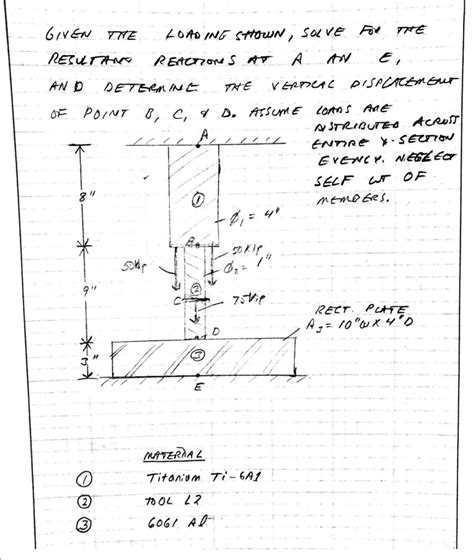 GIVEN THE LOADING SHOWN, SOLVE FOR THE
RESULTANT REACTIONS AT A AN E,
AND DETERMINE THE VERTICAL DISPLACEMENT
OF POINT B, C, & D. ASSUME LOADS ARE
DISTRIBUTED ACROSS
ENTIRE X-SECTION
EVENLY. NEGLECT
SELF WT OF
MEMBERS.
A
8"
①
ϕ₁ = 4"
B
50Kip
50Kip
ϕ₂ = 1"
9"
②
C
75Kip
RECT. PLATE
A₃ = 10"W X 4"D
D
3"
③
E
MATERIAL
① Titanium Ti-6A1
② TOOL L2
③ 6061 Al